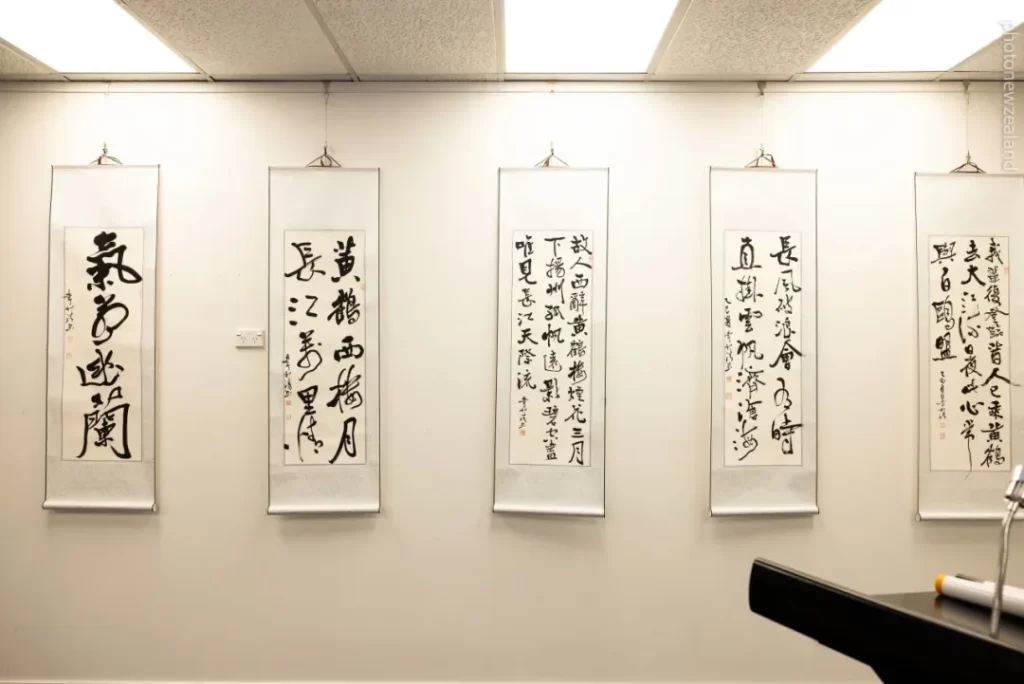 氣若幽蘭
黃鶴西樓月
長江萬里情
故人西辭黃鶴樓煙花三月
下揚州孤帆遠影碧空盡
唯見長江天際流
長風破浪會有時
直掛雲帆濟滄海
我輩復登臨昔人已乘黃鶴
去大江流日夜此心常
與白鷗盟
photonewzealand